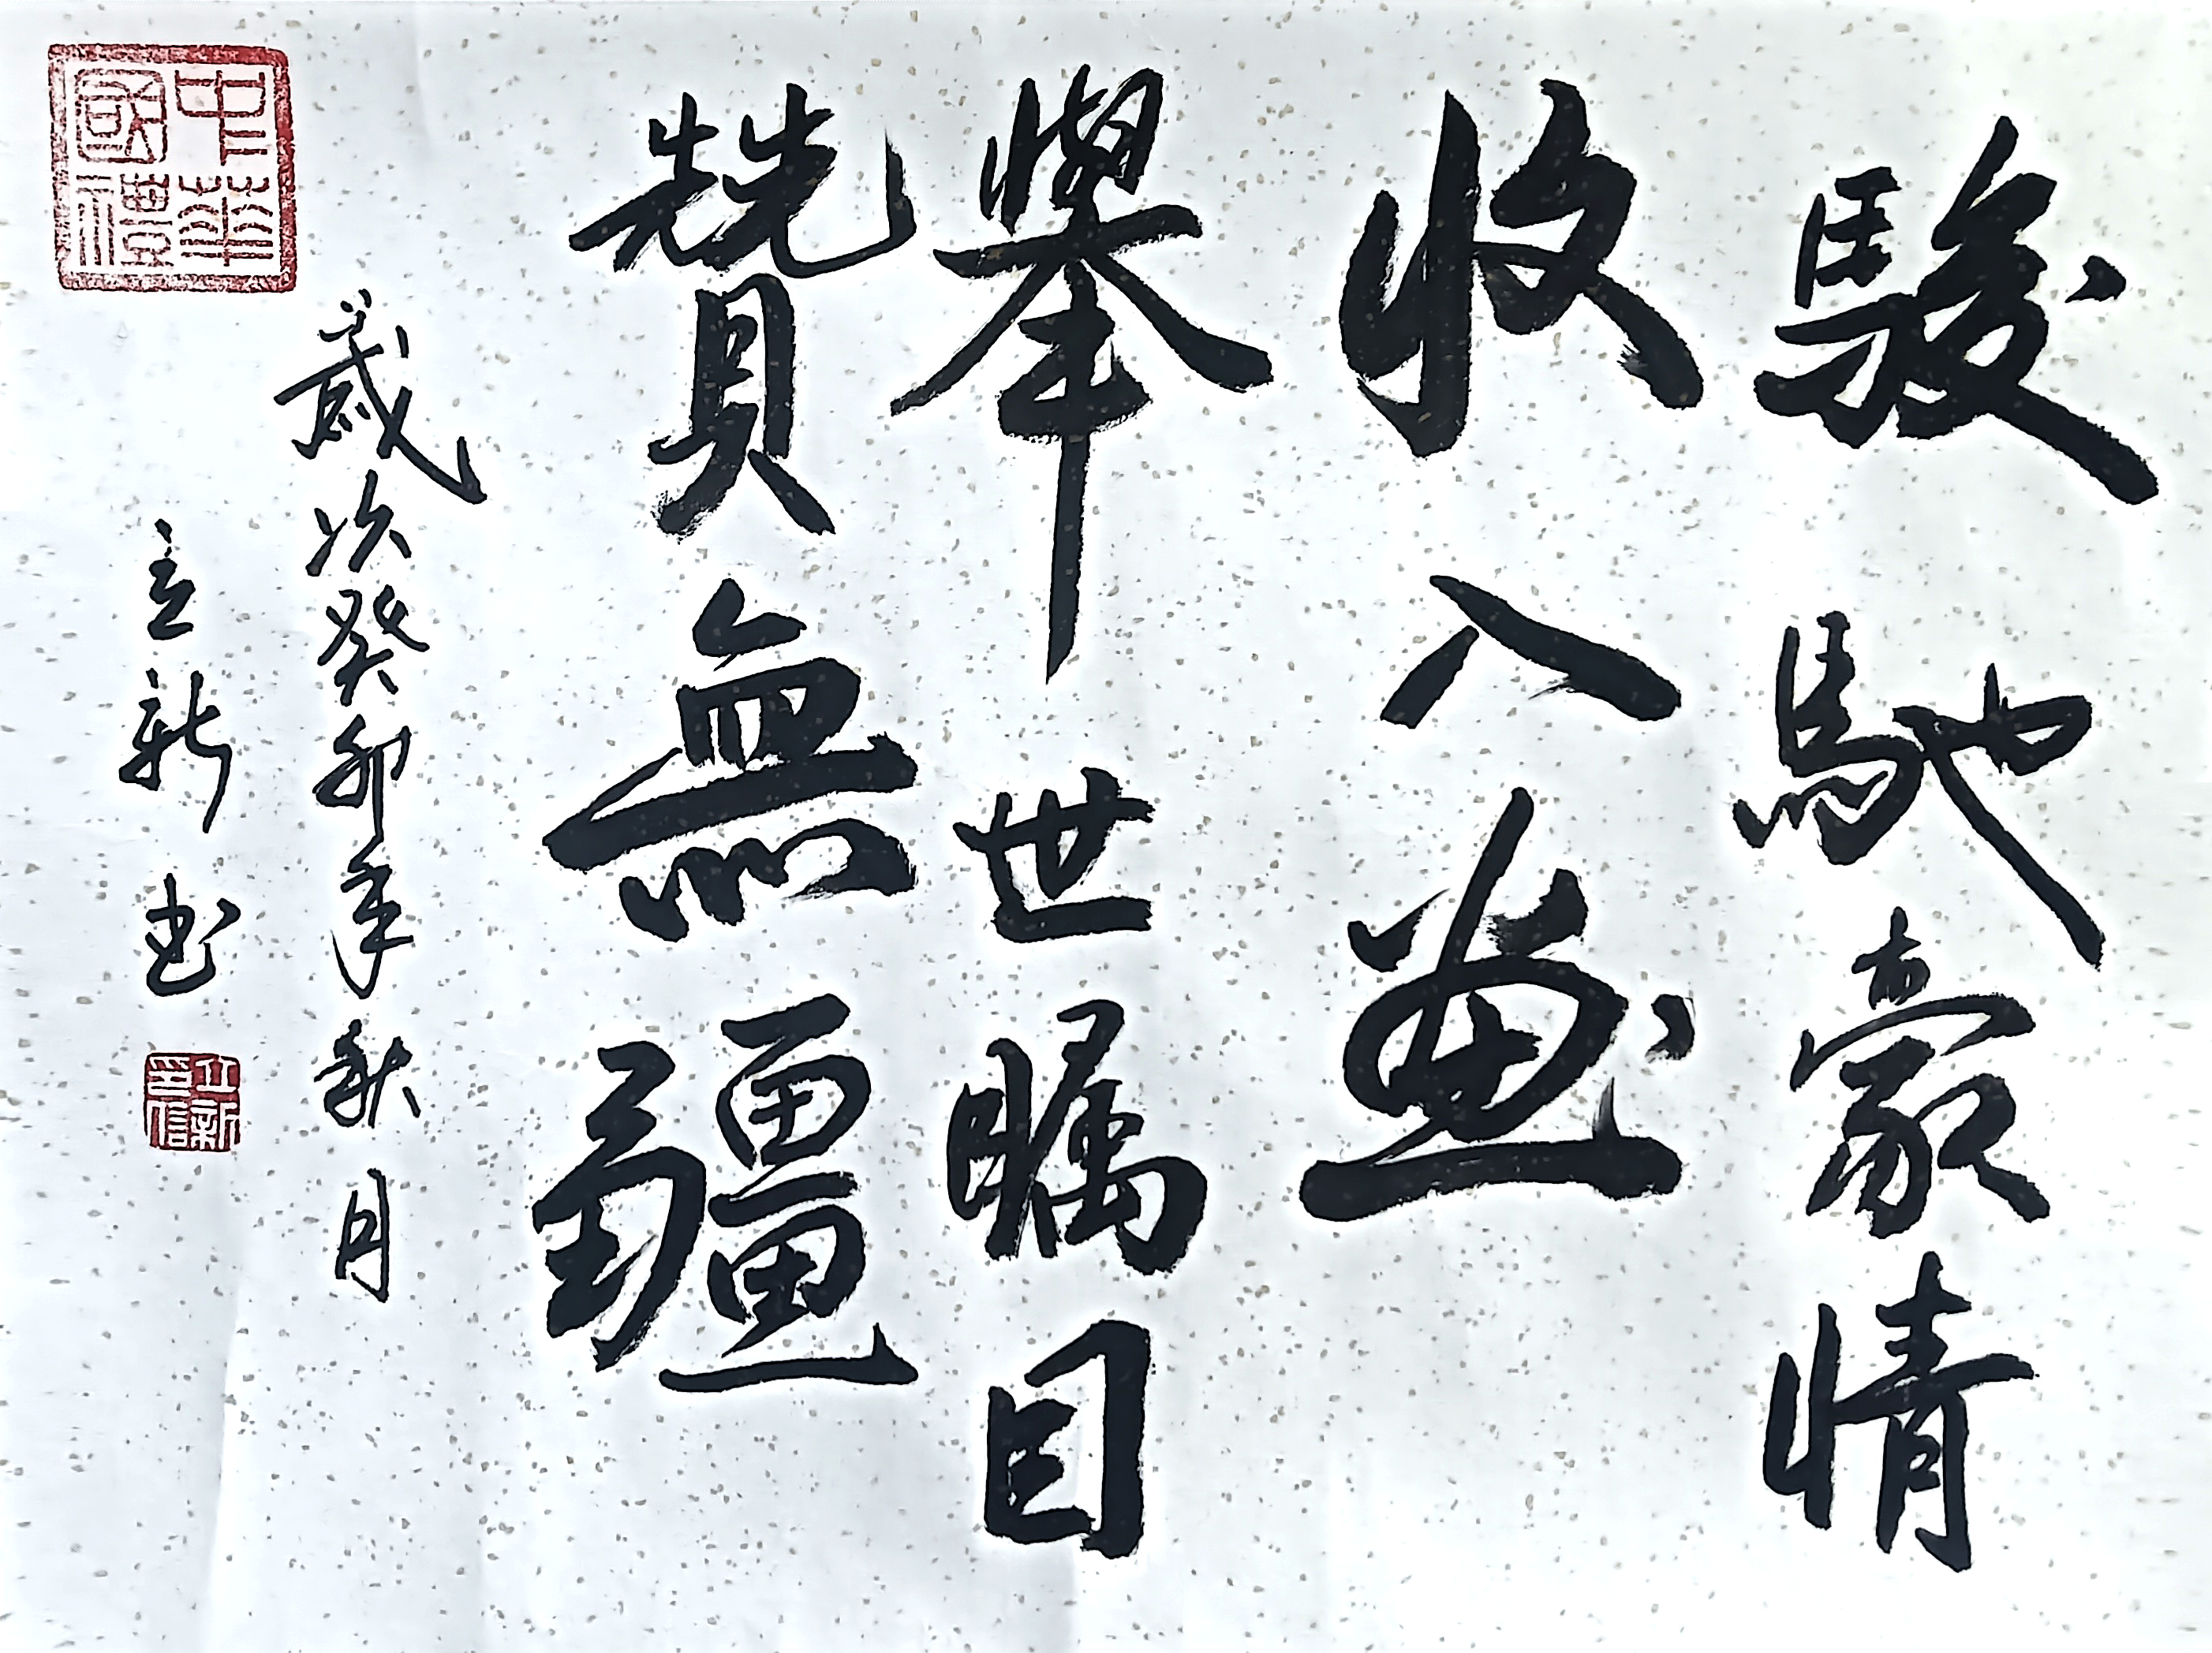 駿馳豪情
收入画
舉世瞩目
贊無疆
歲次癸卯年秋月
立新书
中華國禮
立新印信